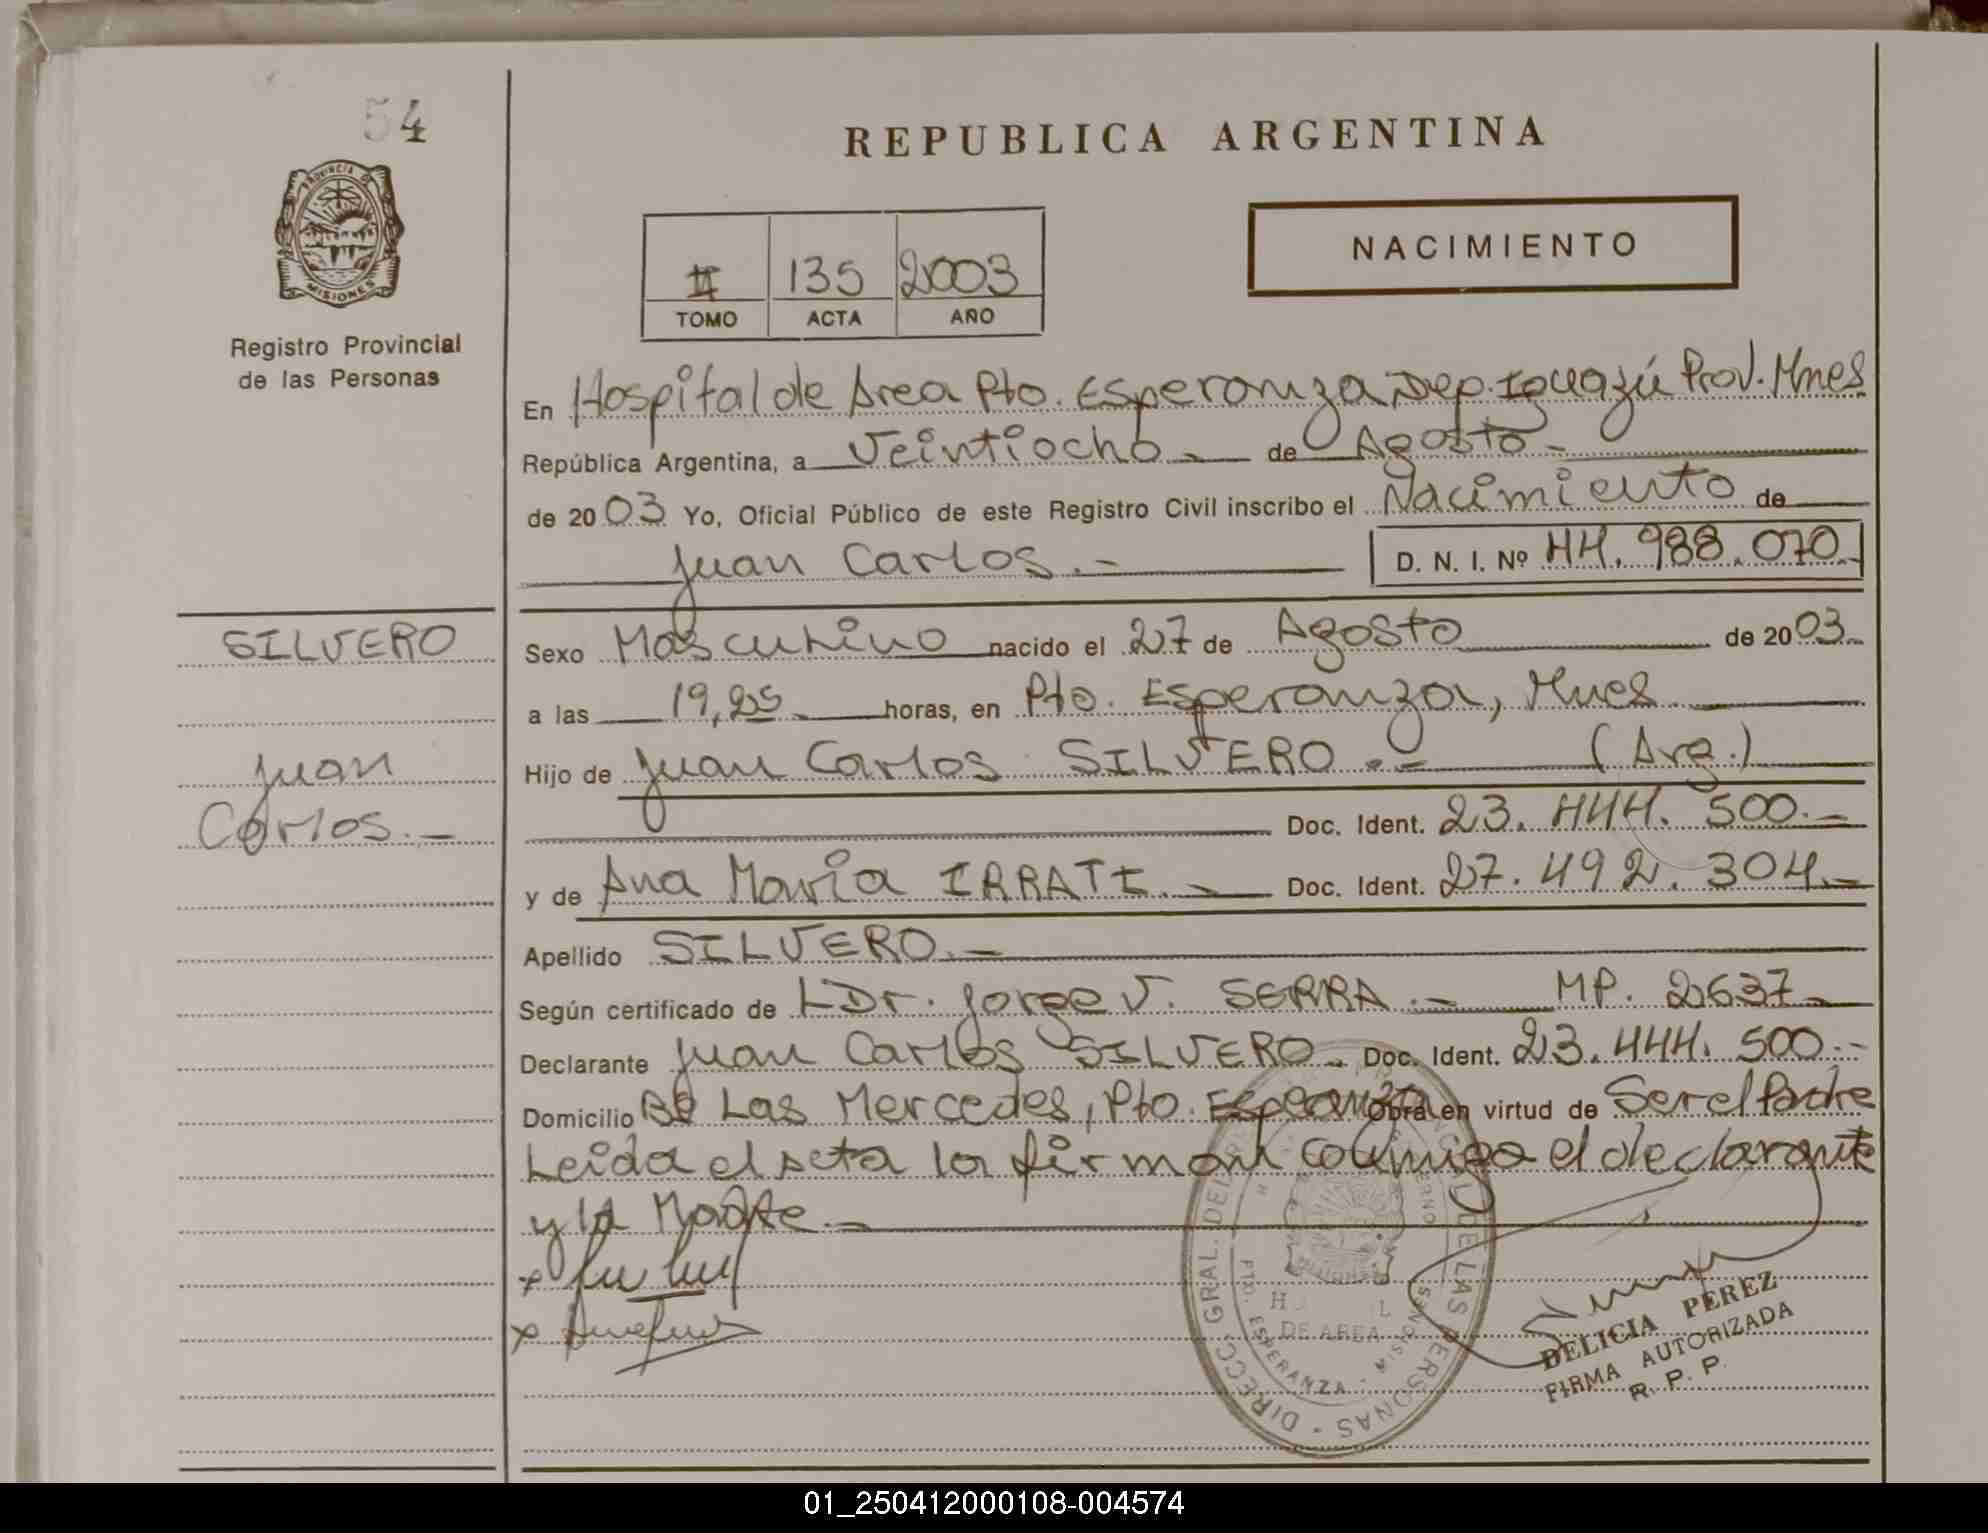 54
REPUBLICA ARGENTINA
PROVINCIA DE
MISIONES
NACIMIENTO
II 135 2003
TOMO ACTA AÑO
Registro Provincial
de las Personas
En Hospital de Area Pto. Esperanza Dep. Iguazú Prov. Mnes
República Argentina, a Veintiocho.- de Agosto.-
de 2003 Yo, Oficial Público de este Registro Civil inscribo el Nacimiento de
Juan Carlos.- D. N. I. Nº 44.988.070.-
SILVERO
Sexo Masculino nacido el 27 de Agosto de 2003.-
a las 19,25 horas, en Pto. Esperanza, Mnes.
Juan
Hijo de Juan Carlos SILVERO.- (Arg.)
Carlos.-
Doc. Ident. 23.444.500.-
y de Ana Maria IRRATI.- Doc. Ident. 27.492.304.-
Apellido SILVERO.-
Según certificado de LDr. Jorge V. SERRA.- MP. 2637-
Declarante Juan Carlos SILVERO.- Doc. Ident. 23.444.500.-
Domicilio Bº Las Mercedes, Pto. Esperanza Obra en virtud de Ser el Padre
Leida el acta la firman conmigo el declarante
y la Madre.-
x
x
DIRECC. GRAL. DEL DE LAS PERSONAS
DE AREA
PTO. ESPERANZA - MISIONES
DELICIA PEREZ
FIRMA AUTORIZADA
R. P. P.
01_250412000108-004574